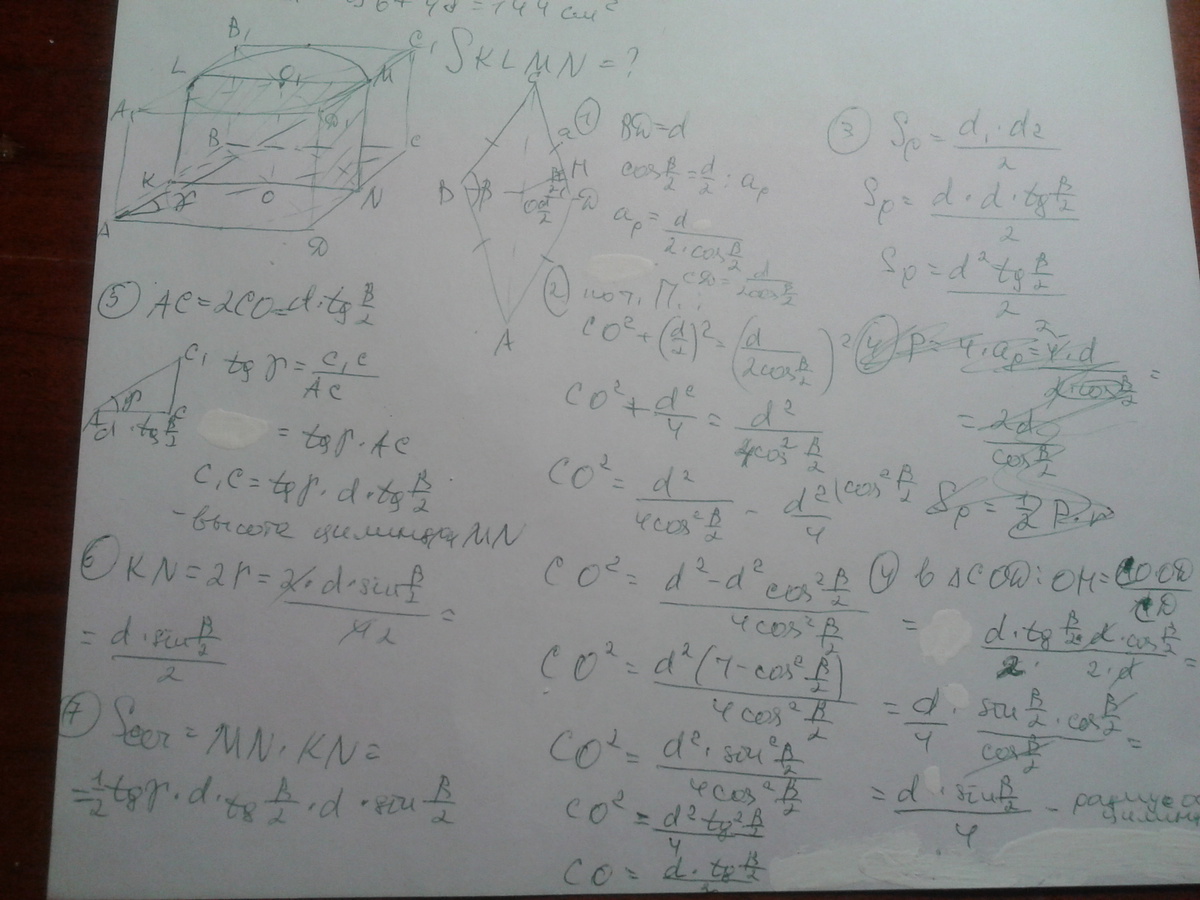 = 144 см²
S KLMN = ?
B₁
C₁
L
O₁
M
A₁
D₁
B
C
K
O
N
A
γ
D
C
a
B
β
H
O
d/2
D
A
① BD = d
cos β/2 = d/2 : aₚ
aₚ = d / (2·cos β/2)
CD = d / (2cos β/2)
② по т. П.:
CO² + (d/2)² = (d / (2cos β/2))²
CO² + d²/4 = d² / (4cos² β/2)
CO² = d² / (4cos² β/2) - d²/4 (cos² β/2
CO² = (d² - d² cos² β/2) / (4cos² β/2)
CO² = d²(1 - cos² β/2) / (4cos² β/2)
CO² = d²·sin² β/2 / (4cos² β/2)
CO² = d² tg² β/2 / 4
CO = d·tg β/2
③ Sₚ = d₁·d₂ / 2
Sₚ = d·d·tg β/2 / 2
Sₚ = d² tg β/2 / 2
④ P = 4·aₚ = 4·d / (2·cos β/2) =
= 2d / cos β/2
Sₚ = 1/2 P·r
④ в ΔCOD: OH = CO·OD / CD
= d·tg β/2 · d·cos β/2 / (2·2·d) =
= d/4 · sin β/2 · cos β/2 / cos β/2 =
= d·sin β/2 / 4 - радиус
⑤ AC = 2CO = d·tg β/2
C₁
A
γ
C
d·tg β/2
tg γ = C₁C / AC
= tg γ · AC
C₁C = tg γ · d · tg β/2
- высота цилиндра MN
⑥ KN = 2r = 2·d·sin β/2 / 4 2 =
= d·sin β/2 / 2
⑦ Sсеч = MN·KN =
= 1/2 tg γ · d · tg β/2 · d · sin β/2